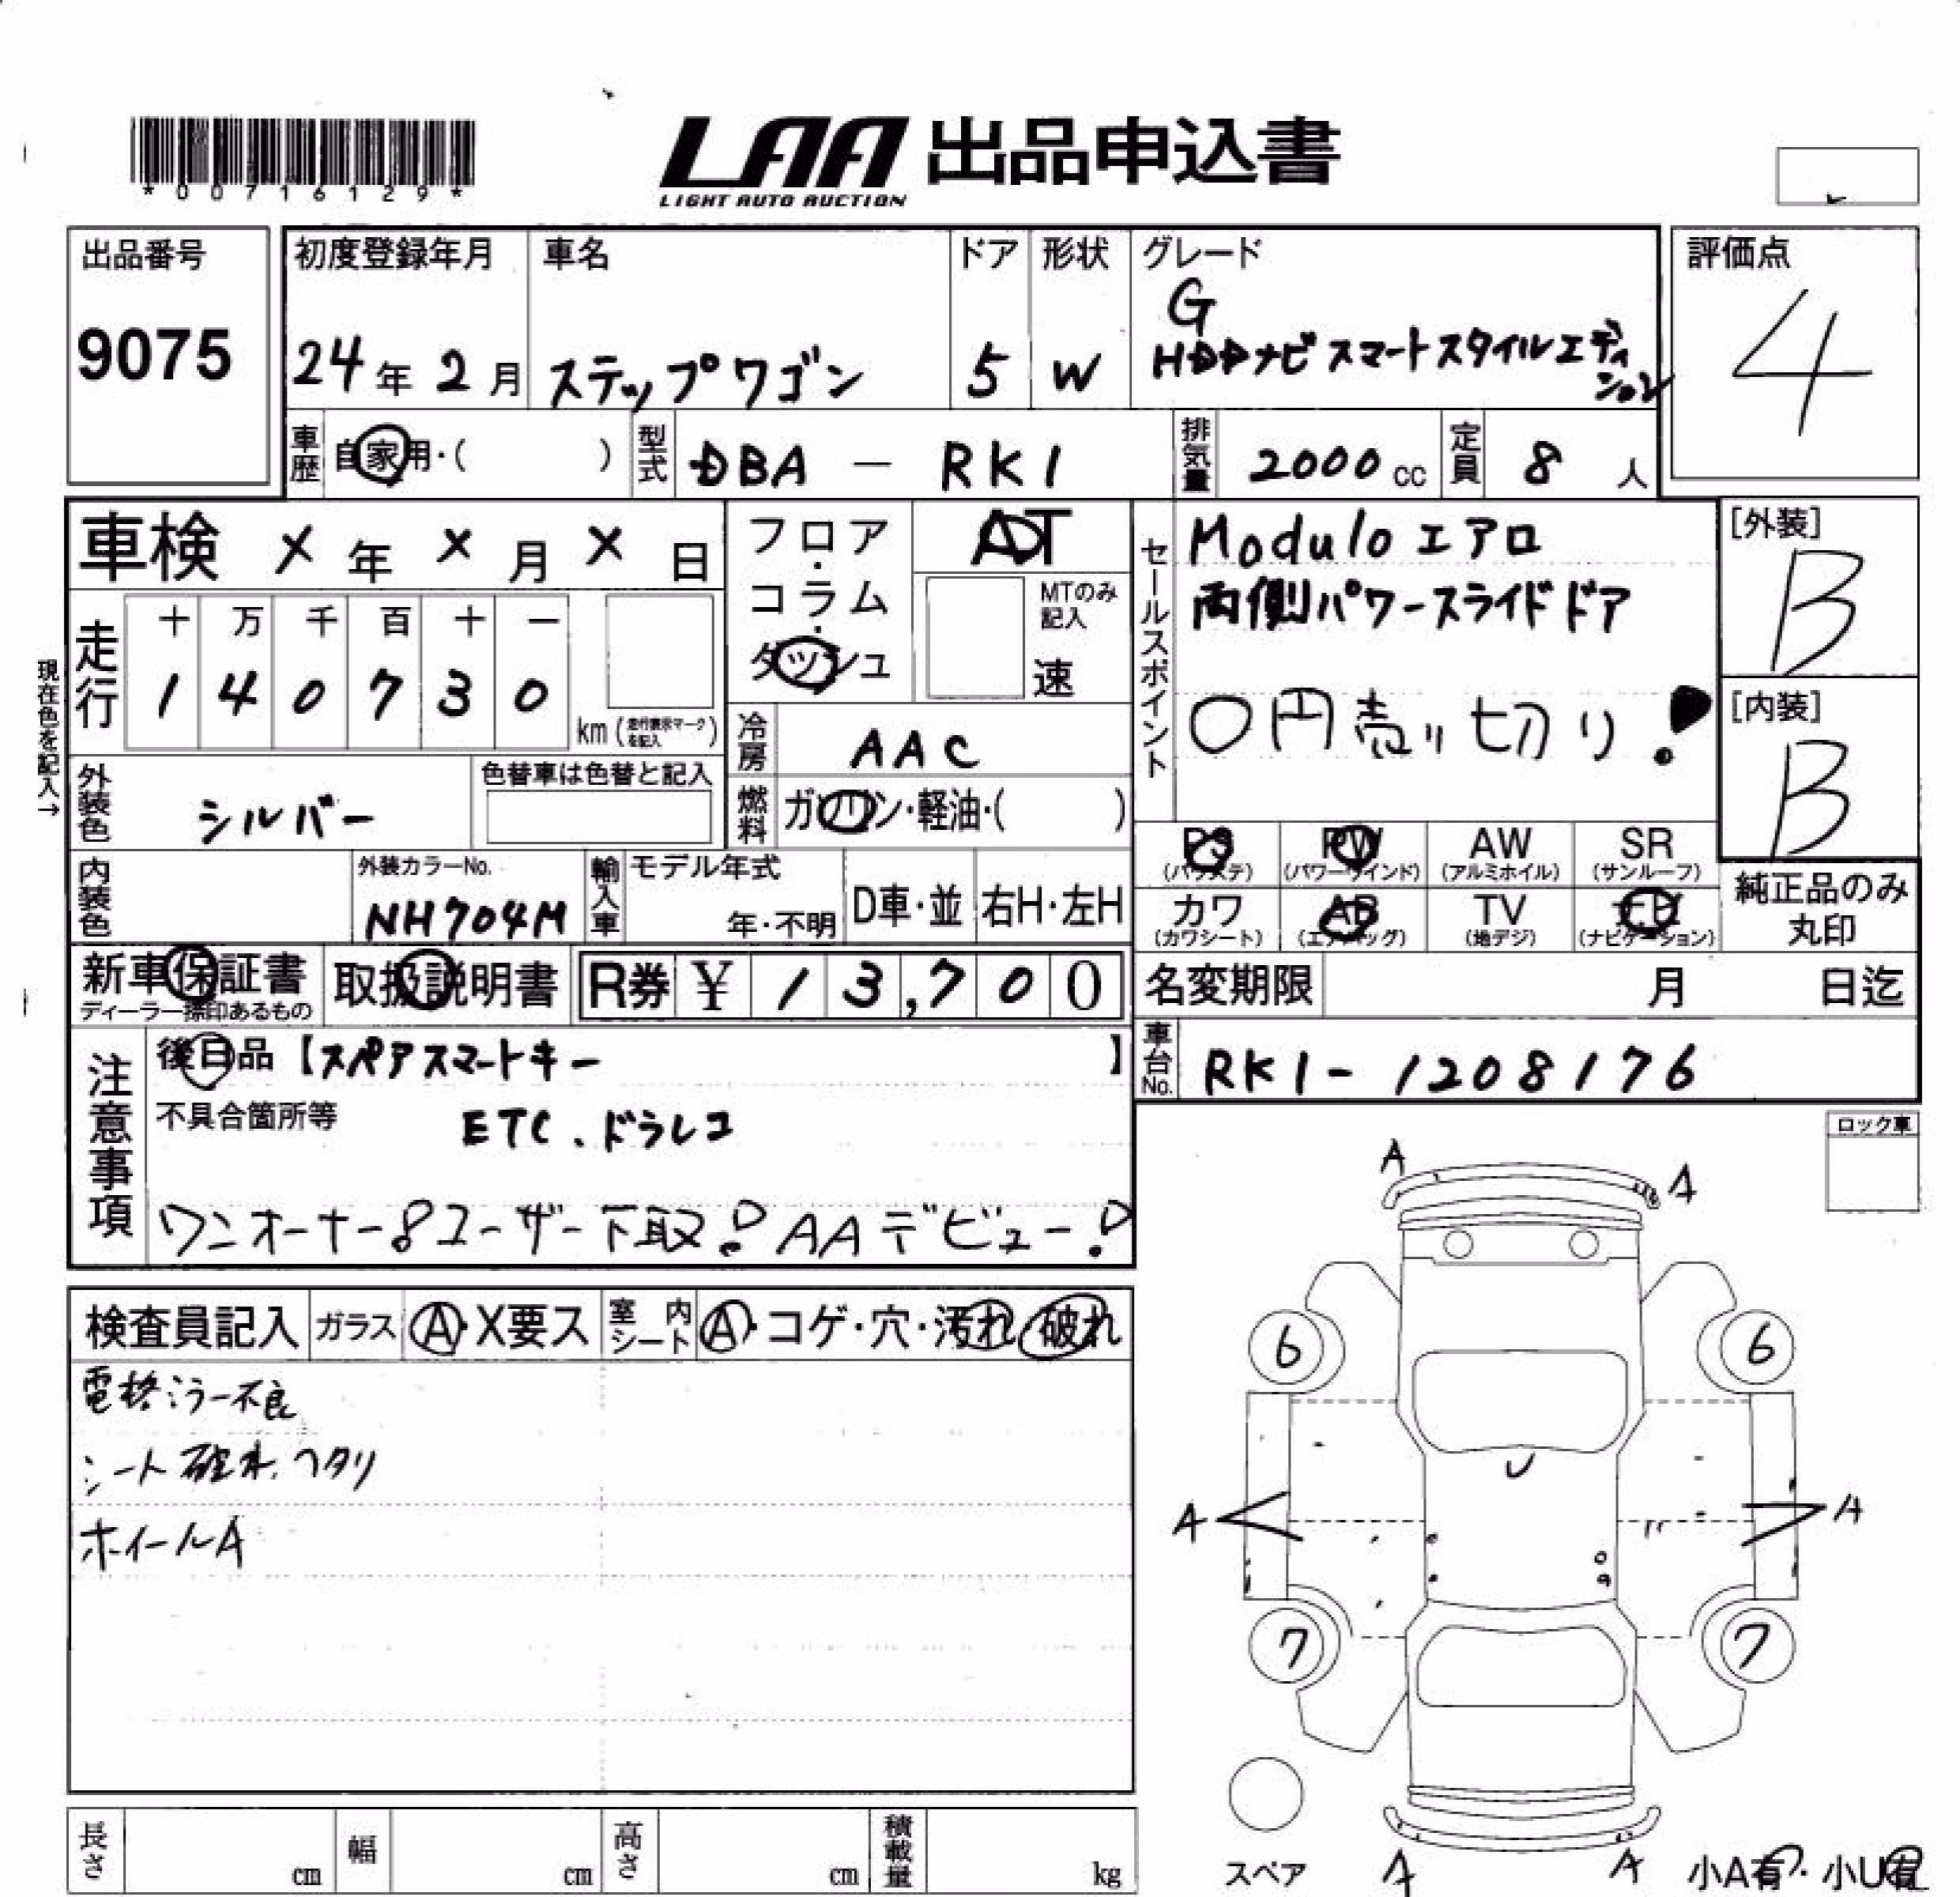 *00716129*
LAA 出品申込書
LIGHT AUTO AUCTION
出品番号
9075
初度登録年月
24年 2月
車名
ステップワゴン
ドア
5
形状
W
グレード
G
HDDナビ スマートスタイルエディション
評価点
4
車歴 自家用・( )
型式 DBA - RK1
排気量 2000cc
定員 8人
車検 X年 X月 X日
フロア・コラム・ダッシュ
AT
MTのみ記入
速
セールスポイント
Modulo エアロ
両側パワースライドドア
0円売り切り!
[外装]
B
[内装]
B
現在色を記入→
走行
十 万 千 百 十 一
1 4 0 7 3 0
km (走行表示マークを記入)
冷房 AAC
燃料 ガソリン・軽油・( )
外装色 シルバー
色替車は色替と記入
内装色
外装カラーNo.
NH704M
輸入車
モデル年式
年・不明
D車・並
右H・左H
PS
(パワステ)
PW
(パワーウインド)
AW
(アルミホイル)
SR
(サンルーフ)
カワ
(カワシート)
AB
(エアバッグ)
TV
(地デジ)
ナビ
(ナビゲーション)
純正品のみ
丸印
新車保証書
ディーラー捺印あるもの
取扱説明書
R券 ¥ 13,700
名変期限 月 日迄
車台No. RK1-1208176
注意事項
後日品【スペアスマートキー 】
不具合箇所等 ETC、ドラレコ
ワンオーナー&ユーザー下取!AAデビュー!
ロック車
検査員記入
ガラス A・X要ス
室内シート A・コゲ・穴・汚れ 破れ
電格ミラー不良
シート破れ、ヘタリ
ホイールA
A A
6 6
U
A A
7 7
スペア
A A
小A有・小U有
長さ cm
幅 cm
高さ cm
積載量 kg